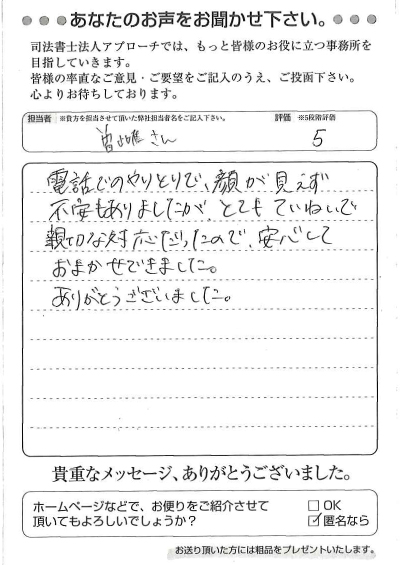 あなたのお声をお聞かせ下さい。
司法書士法人アプローチでは、もっと皆様のお役に立つ事務所を
目指していきます。
皆様の率直なご意見・ご要望をご記入のうえ、ご投函下さい。
心よりお待ちしております。
担当者 ※貴方を担当させて頂いた弊社担当者名をご記入下さい。 評価 ※5段階評価
さん 5
電話でのやりとりで、顔が見えず
不安もありましたが、とてもていねいで
親切な対応だったので、安心して
おまかせできました。
ありがとうございました。
貴重なメッセージ、ありがとうございました。
ホームページなどで、お便りをご紹介させて
頂いてもよろしいでしょうか?
□ OK
☑ 匿名なら
お送り頂いた方には粗品をプレゼントいたします。